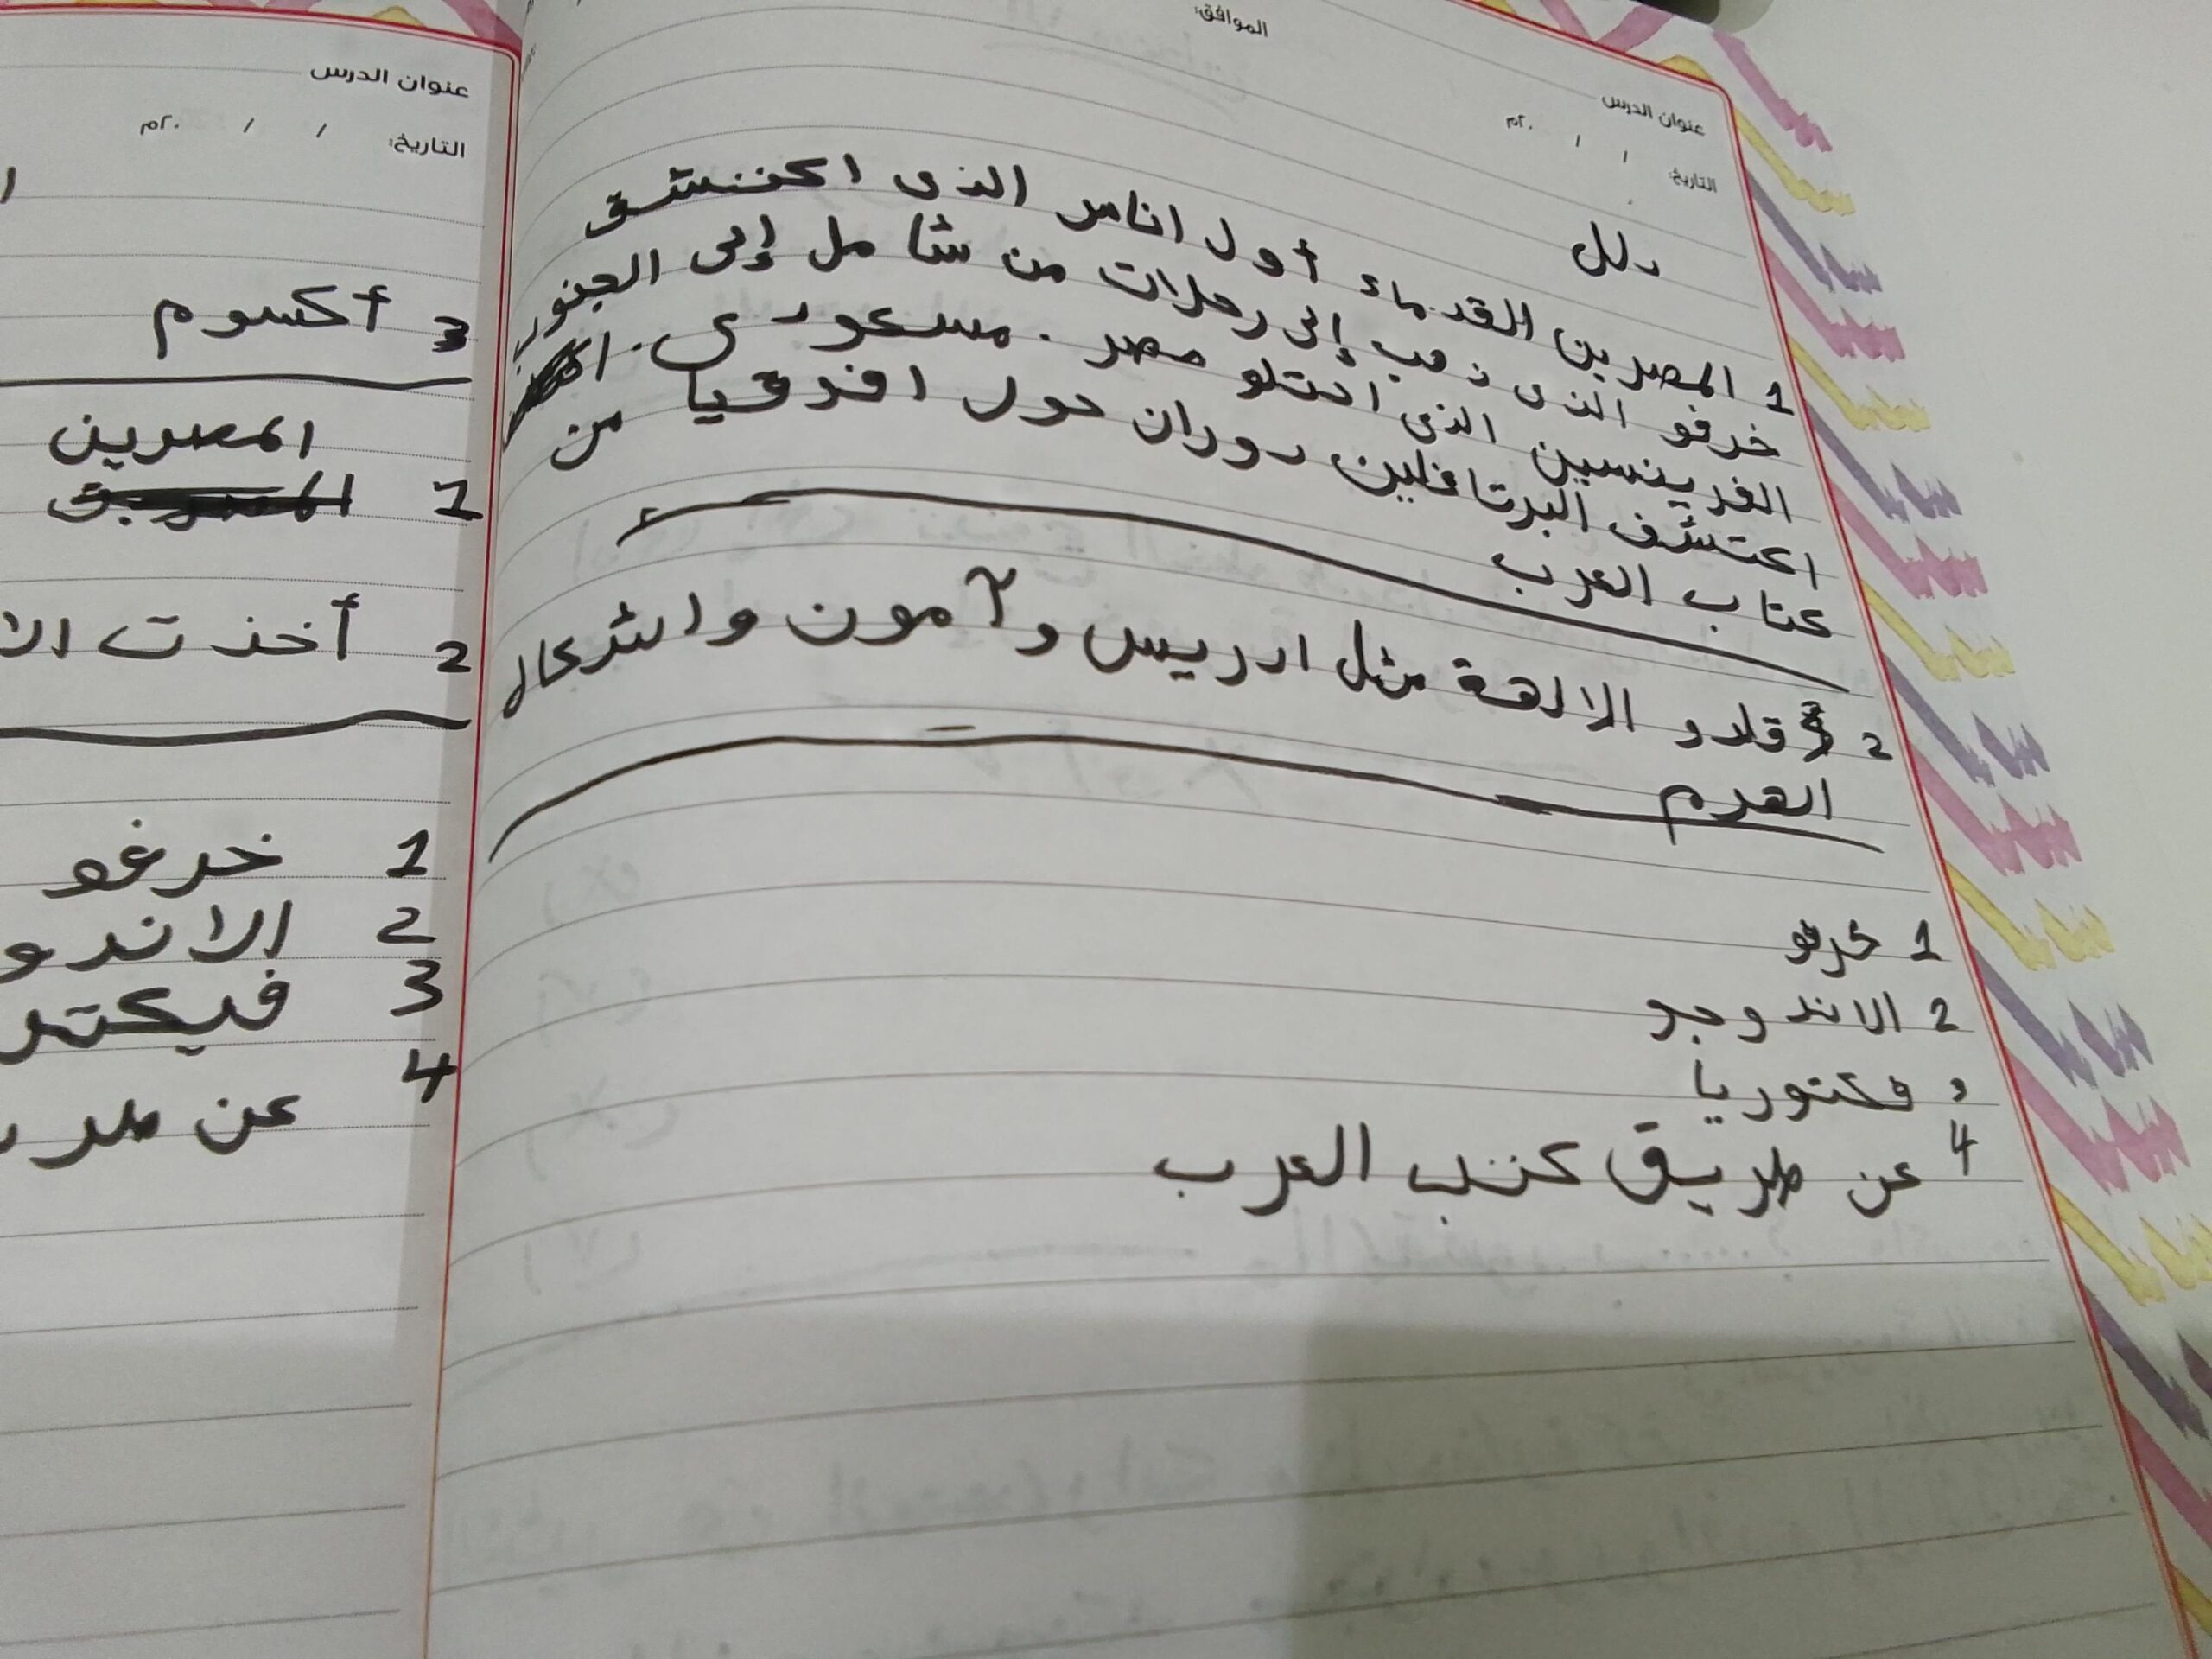 الموافق:
عنوان الدرس
التاريخ: / / ٢٠م
دلل
1 المصرين القدماء أول اناس الذى اكتشق
خرفو الذى ذهب إلى رحلات من شامل إلى الجنور
الفرينسين الذى احتلو مصر . مسعودى .
اكتشف البرتاغلين دوران حول افرقيا من
كتاب العرب
2 قلدو الالهة مثل ادريس وآمون والشكال
الهرم
1 خرفو
2 الاندوجو
3 فكتوريا
4 عن طريق كتب العرب
عنوان الدرس
التاريخ: / / ٢٠م
3 أكسوم
المصرين
1
2 أخذت الا
1 خرغو
2 الاندو
3 فيكتر
4
عن طر